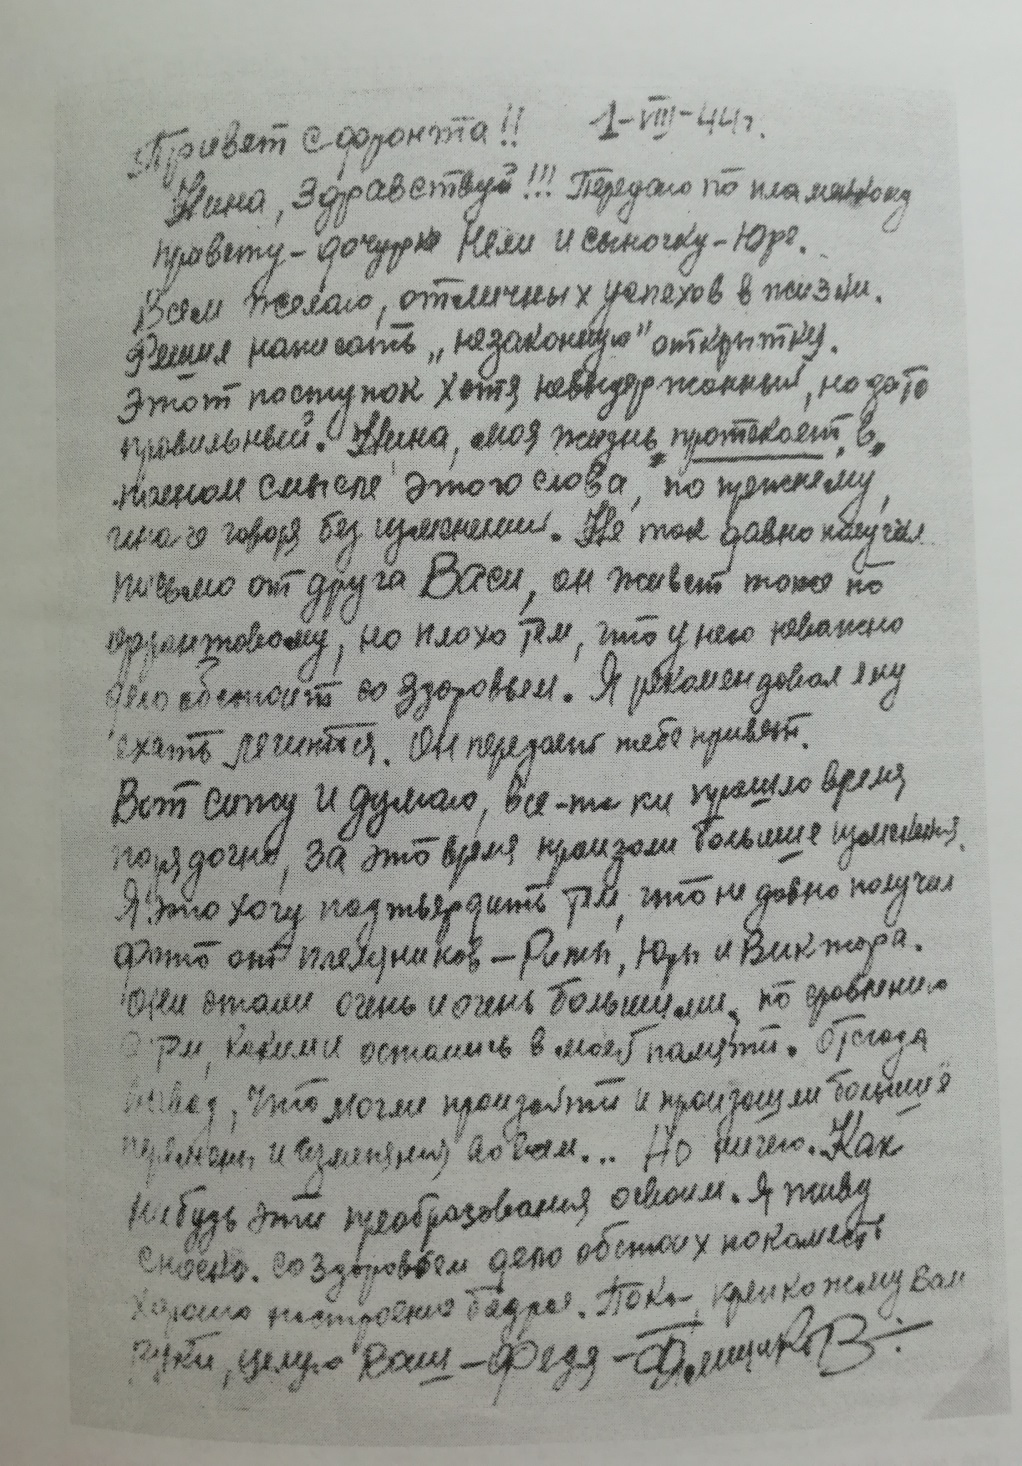 Привет с фронта!! 1-VIII-44г.
Нина, Здравствуй!!! Передаю по пламенному
привету - дочурке Неле и сыночку - Юре.
Всем желаю, отличных успехов в жизни.
Решил написать „незаконную" открытку.
Этот поступок хотя невыдержанный, но зато
правильный. Нина, моя жизнь „протекает" в
полном смысле этого слова, по прежнему,
иначе говоря без изменений. Не так давно получил
письмо от друга Васи, он живет тоже по
фронтовому, но плохо тем, что у него неважно
дело обстоит со здоровьем. Я рекомендовал ему
ехать лечиться. Он передает тебе привет.
Вот сижу и думаю, все-та ки прошло время
порядочно, за это время произошли большие изменения.
Я это хочу подтвердить тем, что не давно получил
фото от племянников - Риты, Юры и Виктора.
Они стали очень и очень большими, по сравнению
с тем, какими остались в моей памяти. Отсюда
вывод, что могли произойти и произошли большие
перемены и изменения во всем... Но ничего. Как
нибудь эти преобразования освоим. Я живу
сносно. Со здоровьем дело обстоит покаместь
хорошо настроение бодрое. Пока, крепко жму Вам
руки, целую Ваш - Федя -